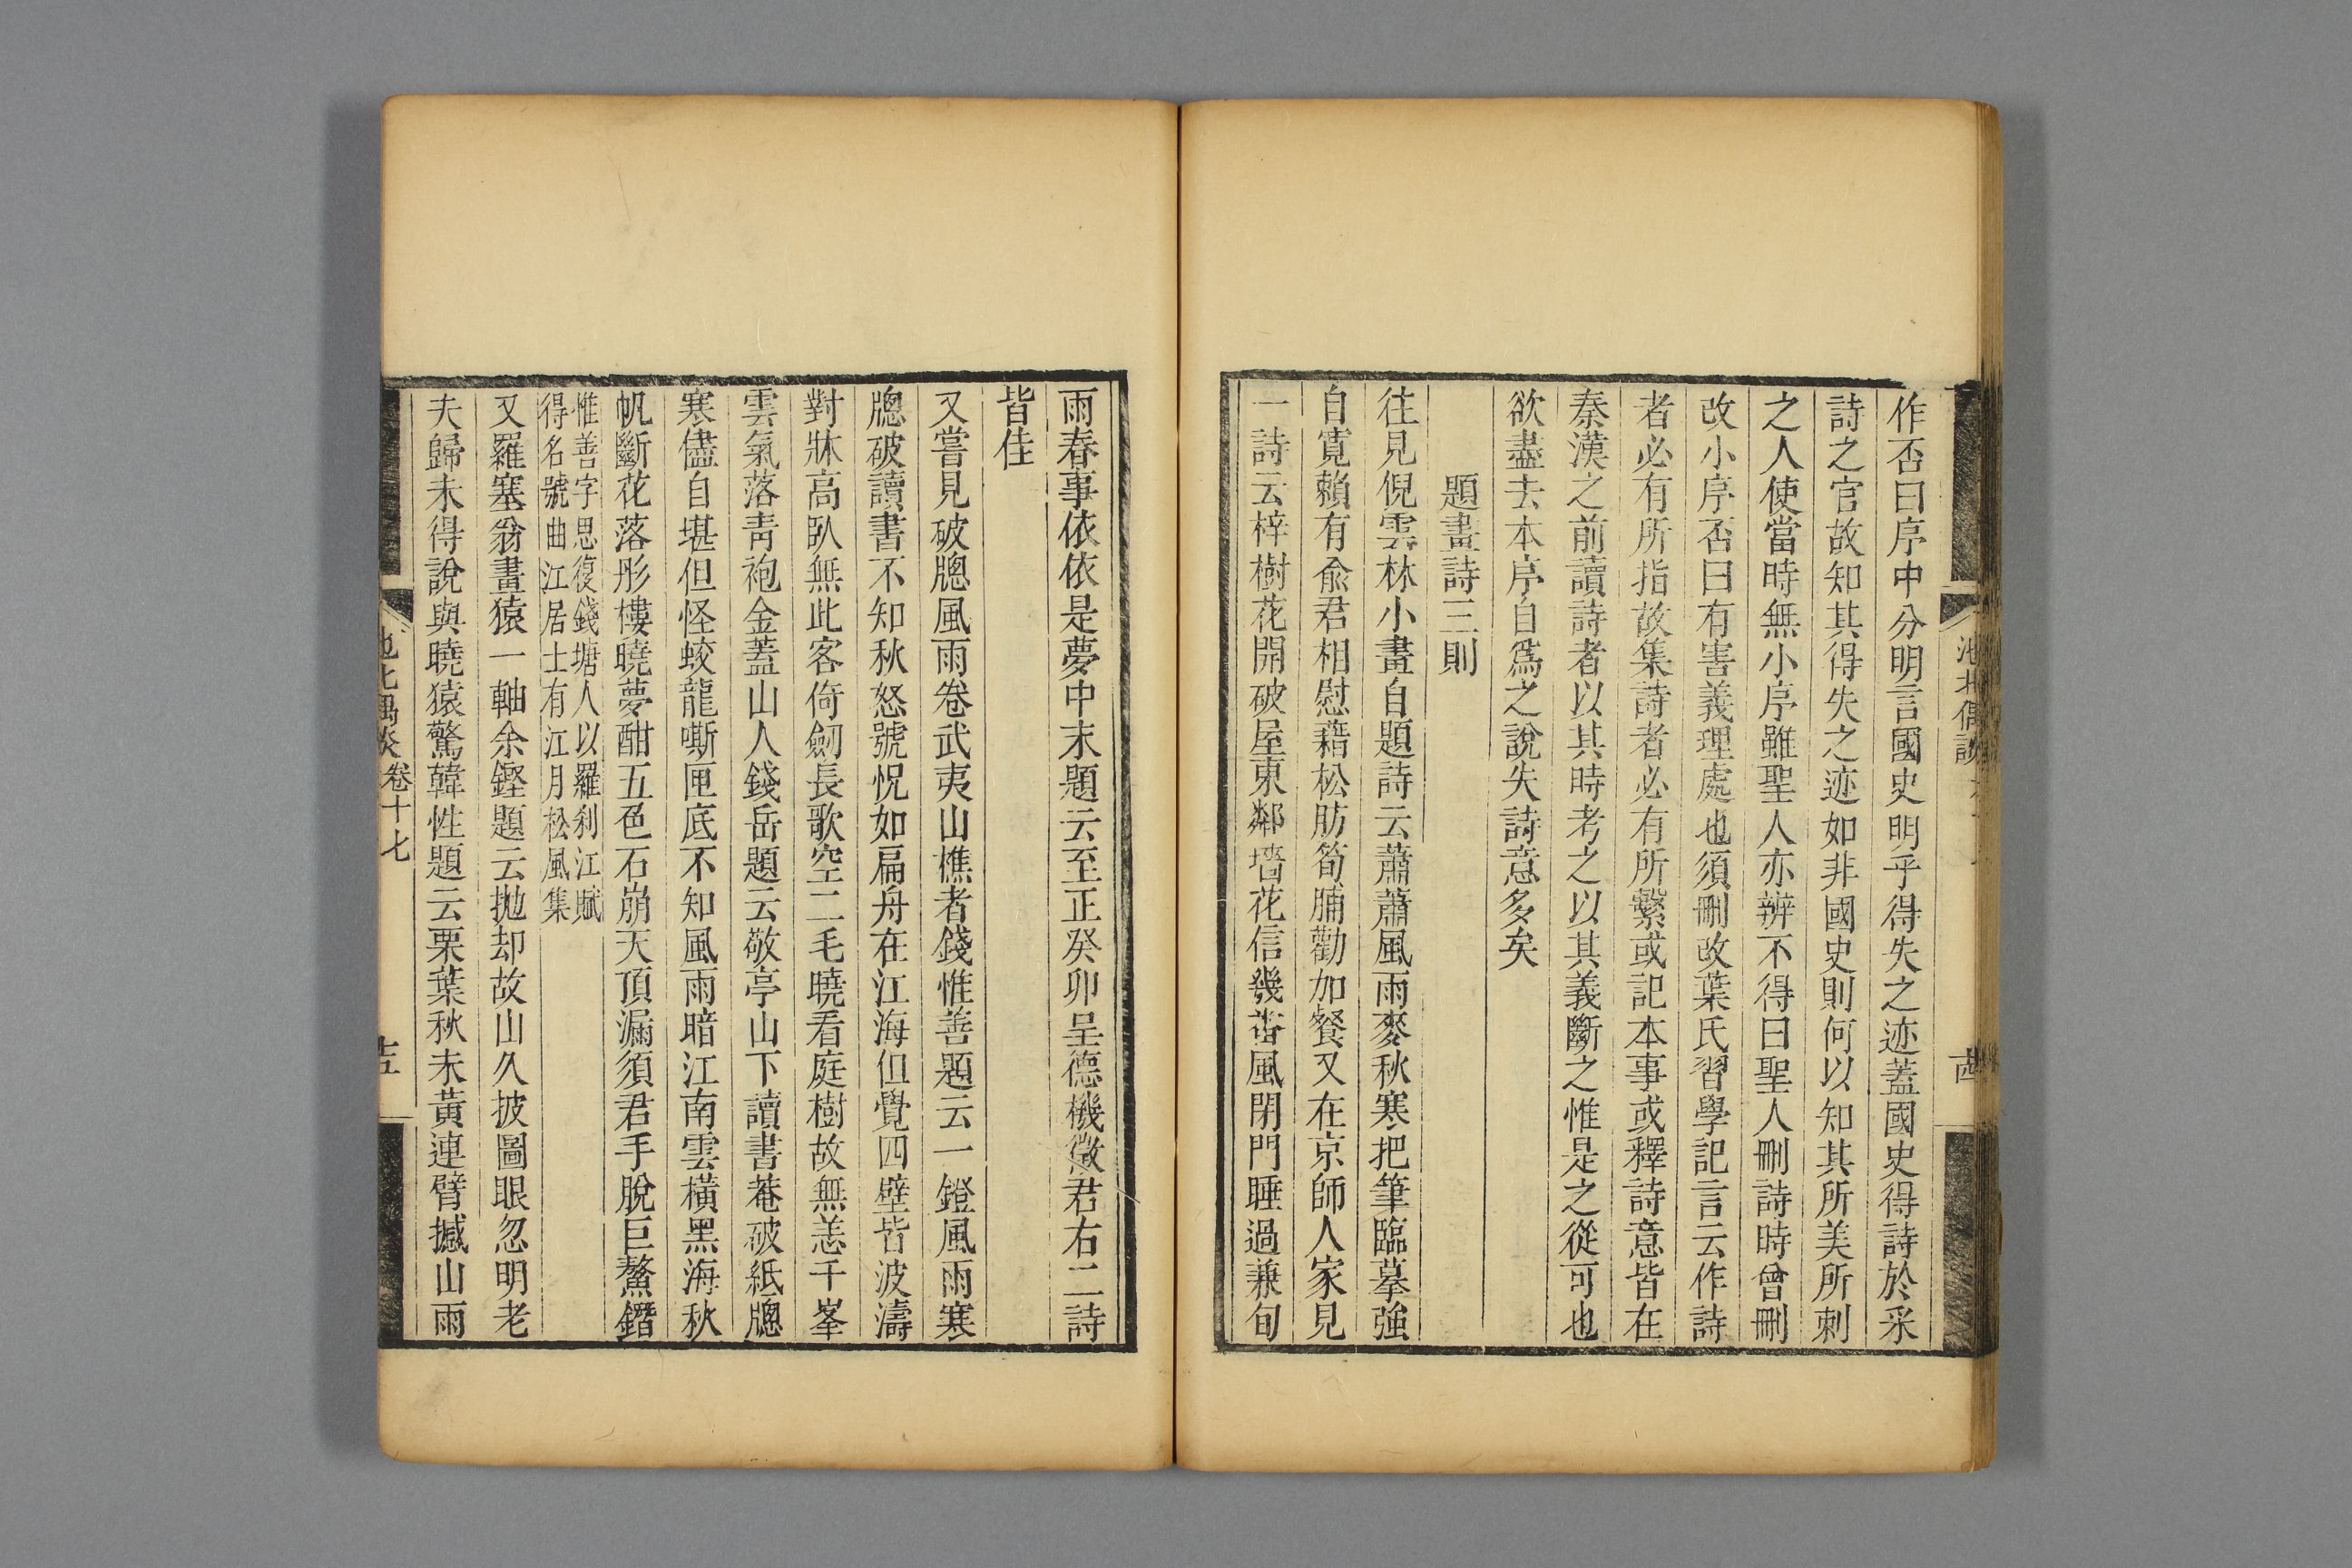 作否曰序中分明言國史明乎得失之迹蓋國史得詩於采
詩之官故知其得失之迹如非國史則何以知其所美所刺
之人使當時無小序雖聖人亦辨不得曰聖人刪詩時曾刪
改小序否曰有害義理處也須刪改葉氏習學記言云作詩
者必有所指故集詩者必有所繫或記本事或釋詩意皆在
秦漢之前讀詩者以其時考之以其義斷之惟是之從可也
欲盡去本序自爲之說失詩意多矣
題畫詩三則
往見倪雲林小畫自題詩云蕭蕭風雨麥秋寒把筆臨摹強
自寬賴有兪君相慰藉松肪筍脯勸加餐又在京師人家見
一詩云梓樹花開破屋東鄰墻花信幾番風閉門睡過兼旬
雨春事依依是夢中末題云至正癸卯呈德機徵君右二詩
皆佳
又嘗見破牕風雨卷武夷山樵者錢惟善題云一鐙風雨寒
牕破讀書不知秋怒號怳如扁舟在江海但覺四壁皆波濤
對牀高臥無此客倚劒長歌空二毛曉看庭樹故無恙千峯
雲氣落青袍金蓋山人錢岳題云敬亭山下讀書菴破紙牕
寒儘自堪但怪蛟龍嘶匣底不知風雨暗江南雲橫黑海秋
帆斷花落彤樓曉夢酣五色石崩天頂漏須君手脫巨鰲鐕
惟善字思復錢塘人以羅刹江賦
得名號曲江居士有江月松風集
又羅塞翁畫猿一軸余鏗題云拋却故山久披圖眼忽明老
夫歸未得說與曉猿驚韓性題云栗葉秋未黃連臂撼山雨
池北偶談
卷十七